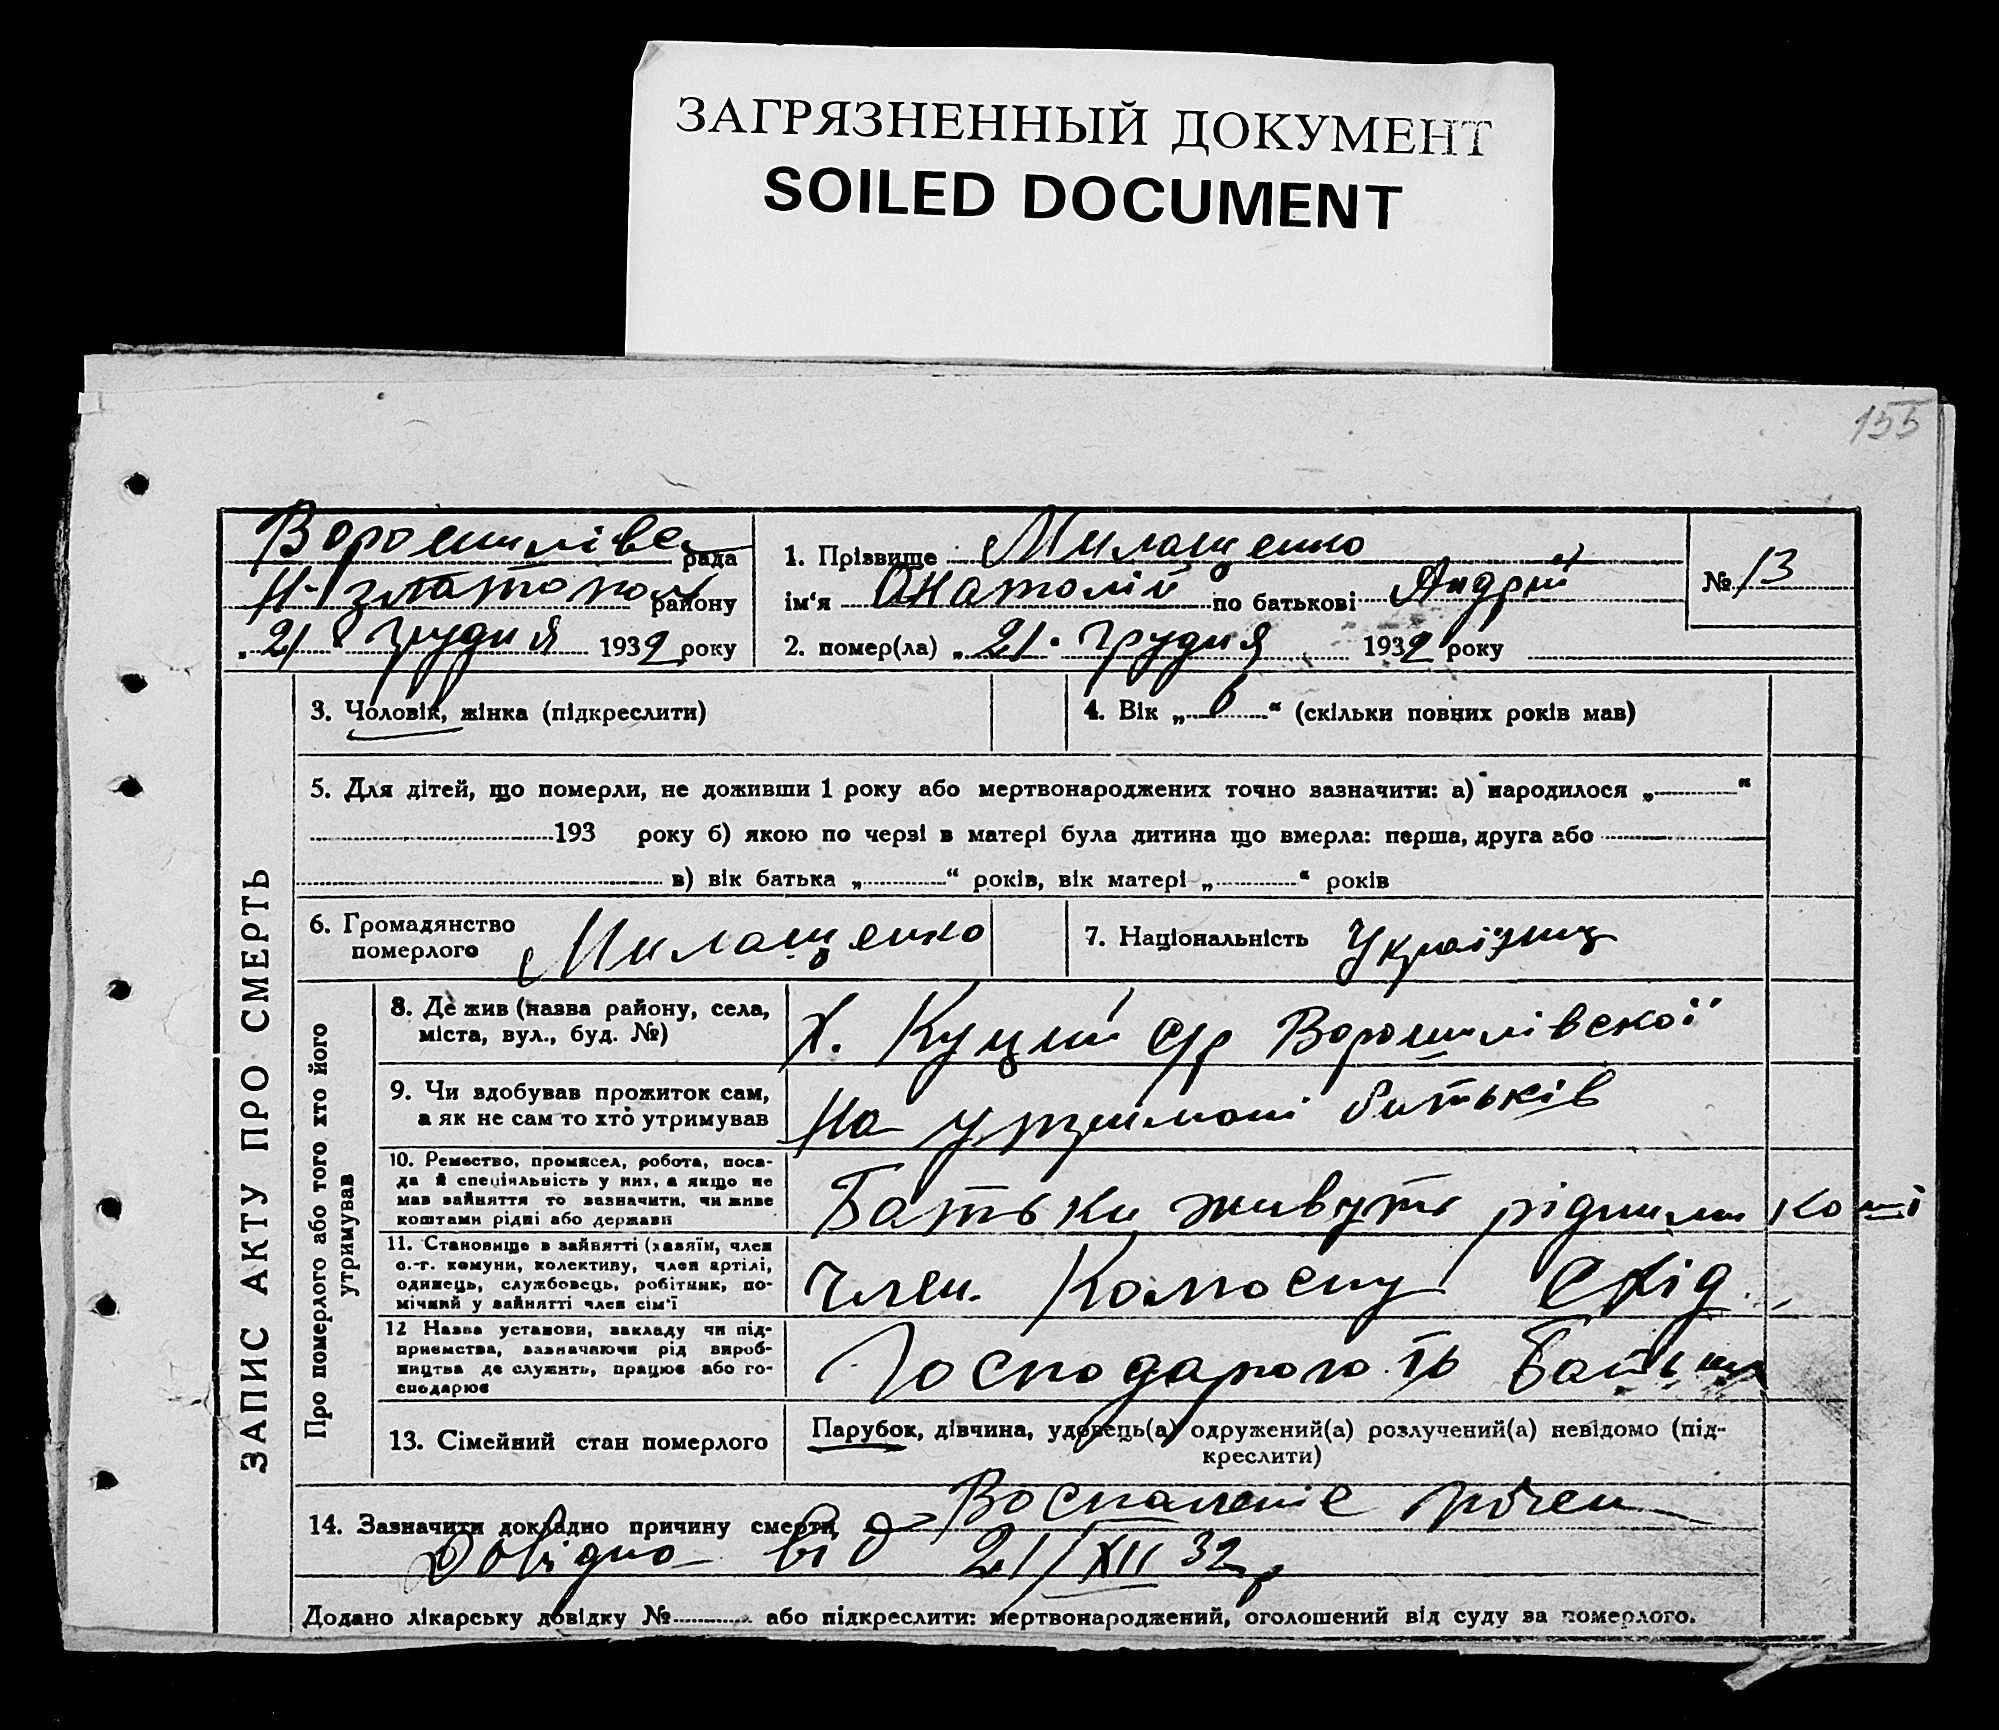 ЗАГРЯЗНЕННЫЙ ДОКУМЕНТ
SOILED DOCUMENT
155
Ворошилівс рада
Н-златопол району
„21" грудня 1932 року
1. Прізвище Милащенко
ім'я Анатолій по батькові Андрій
2. помер(ла) „21" грудня 1932 року
№ 13
ЗАПИС АКТУ ПРО СМЕРТЬ
3. Чоловік, жінка (підкреслити)
4. Вік „6" (скільки повних років мав)
5. Для дітей, що померли, не доживши 1 року або мертвонароджених точно зазначити: а) народилося „ "
193 року б) якою по черзі в матері була дитина що вмерла: перша, друга або
в) вік батька „ " років, вік матері „ " років
6. Громадянство
померлого Милащенко
7. Національність Українц
Про померлого або того хто його
утримував
8. Де жив (назва району, села,
міста, вул., буд. №)
х. Куций с/р Ворошилівскої
9. Чи здобував прожиток сам,
а як не сам то хто утримував
На утримані батьків
10. Ремество, промисел, робота, поса-
да й спеціяльність у них, а якщо не
мав зайняття то зазначити, чи живе
коштами рідні або держави
Батьки живуть рідними коші
11. Становище в зайнятті (хазяїн, член
с.-г. комуни, колективу, член артілі,
одинець, службовець, робітник, по-
мічний у зайнятті член сім'ї
Член. Колгоспу Схід
12 Назва установи, закладу чи під-
приємства, зазначаючи рід вироб-
ництва де служить, працює або го-
сподарює
Господарюють Батьки
13. Сімейний стан померлого
Парубок, дівчина, удовець(а) одружений(а) розлучений(а) невідомо (під-
креслити)
14. Зазначити докладно причину смерти Воспаленіє почек
Довідка від 21/XII 32р
Додано лікарську довідку № або підкреслити: мертвонароджений, оголошений від суду за померлого.